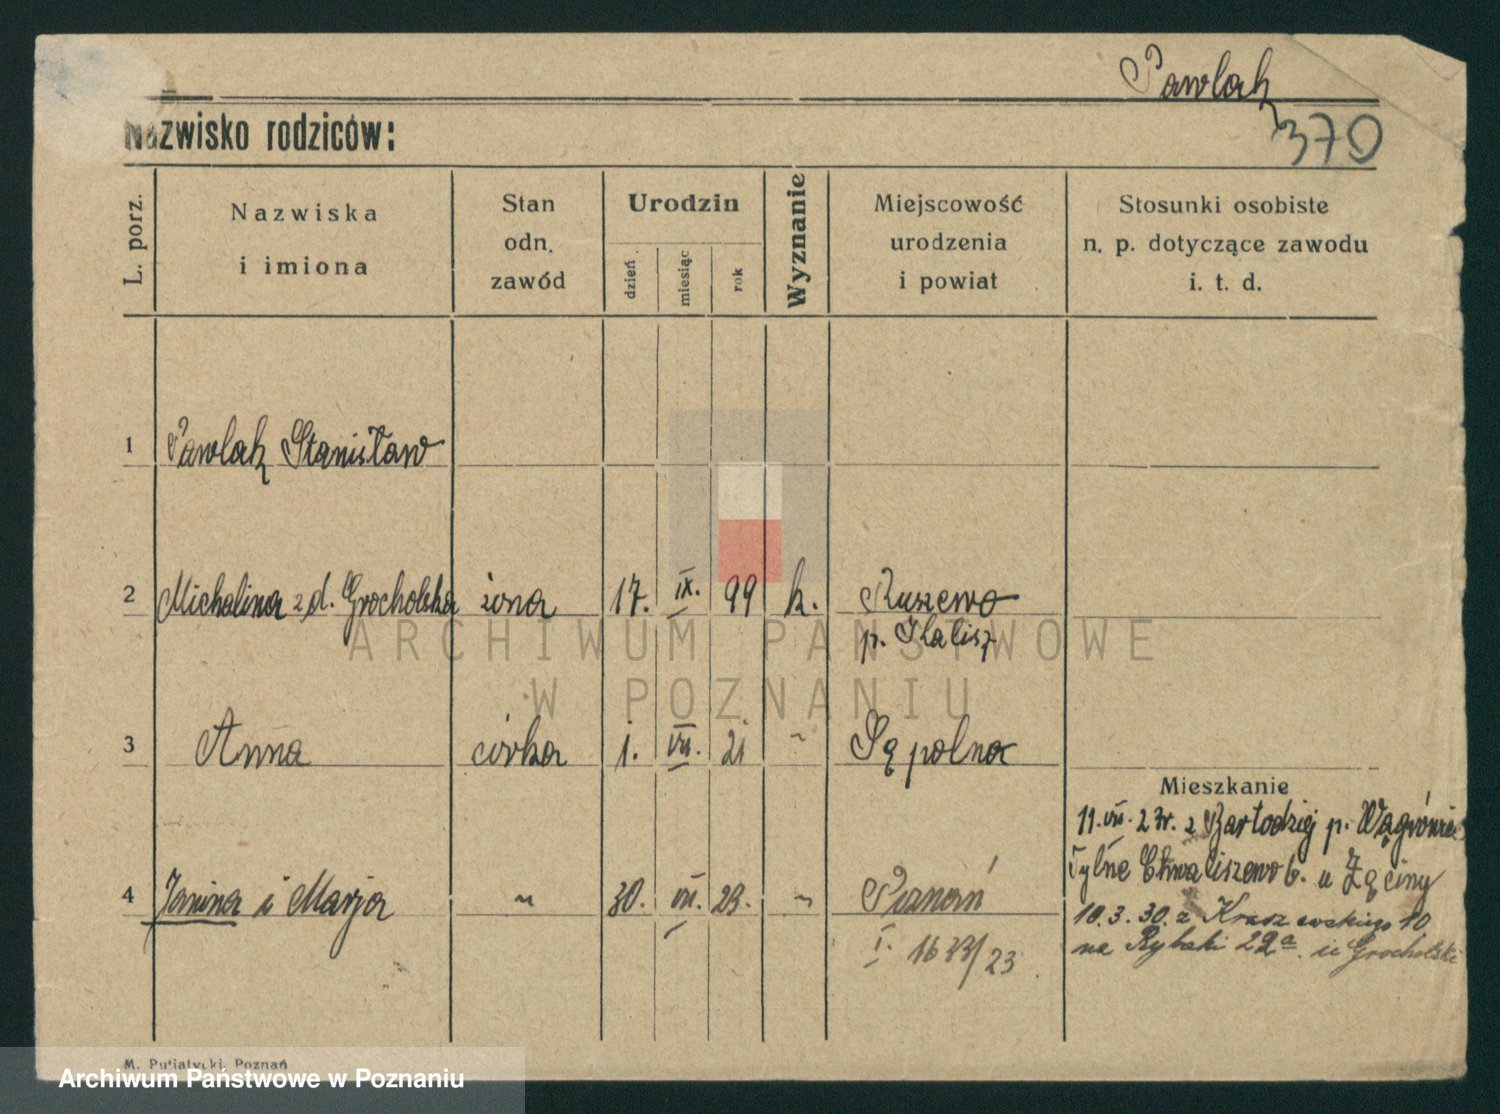 Pawlak
370
Nazwisko rodziców:
L. porz.
Nazwiska
i imiona
Stan
odn.
zawód
Urodzin
dzień
miesiąc
rok
Wyznanie
Miejscowość
urodzenia
i powiat
Stosunki osobiste
n. p. dotyczące zawodu
i. t. d.
1 Pawlak Stanisław
2 Michalina z d. Grocholska żona 17. IX. 99 k. Ruszewo
p. Kalisz
ARCHIWUM PAŃSTWOWE
W POZNANIU
3 Anna córka 1. VII. 21 " Sąpolno
Mieszkanie
11. VII. 27r. z Bartodziej p. Wągrówiec
Tylne Chwaliszewo 6. u
4 Janina i Marja " 30. VII. 23. " Poznań
10.3.30. z Kraszewskiego 10
I. 1633/23
na Rybaki 22a. u Grocholski
M. Putiatycki, Poznań
Archiwum Państwowe w Poznaniu